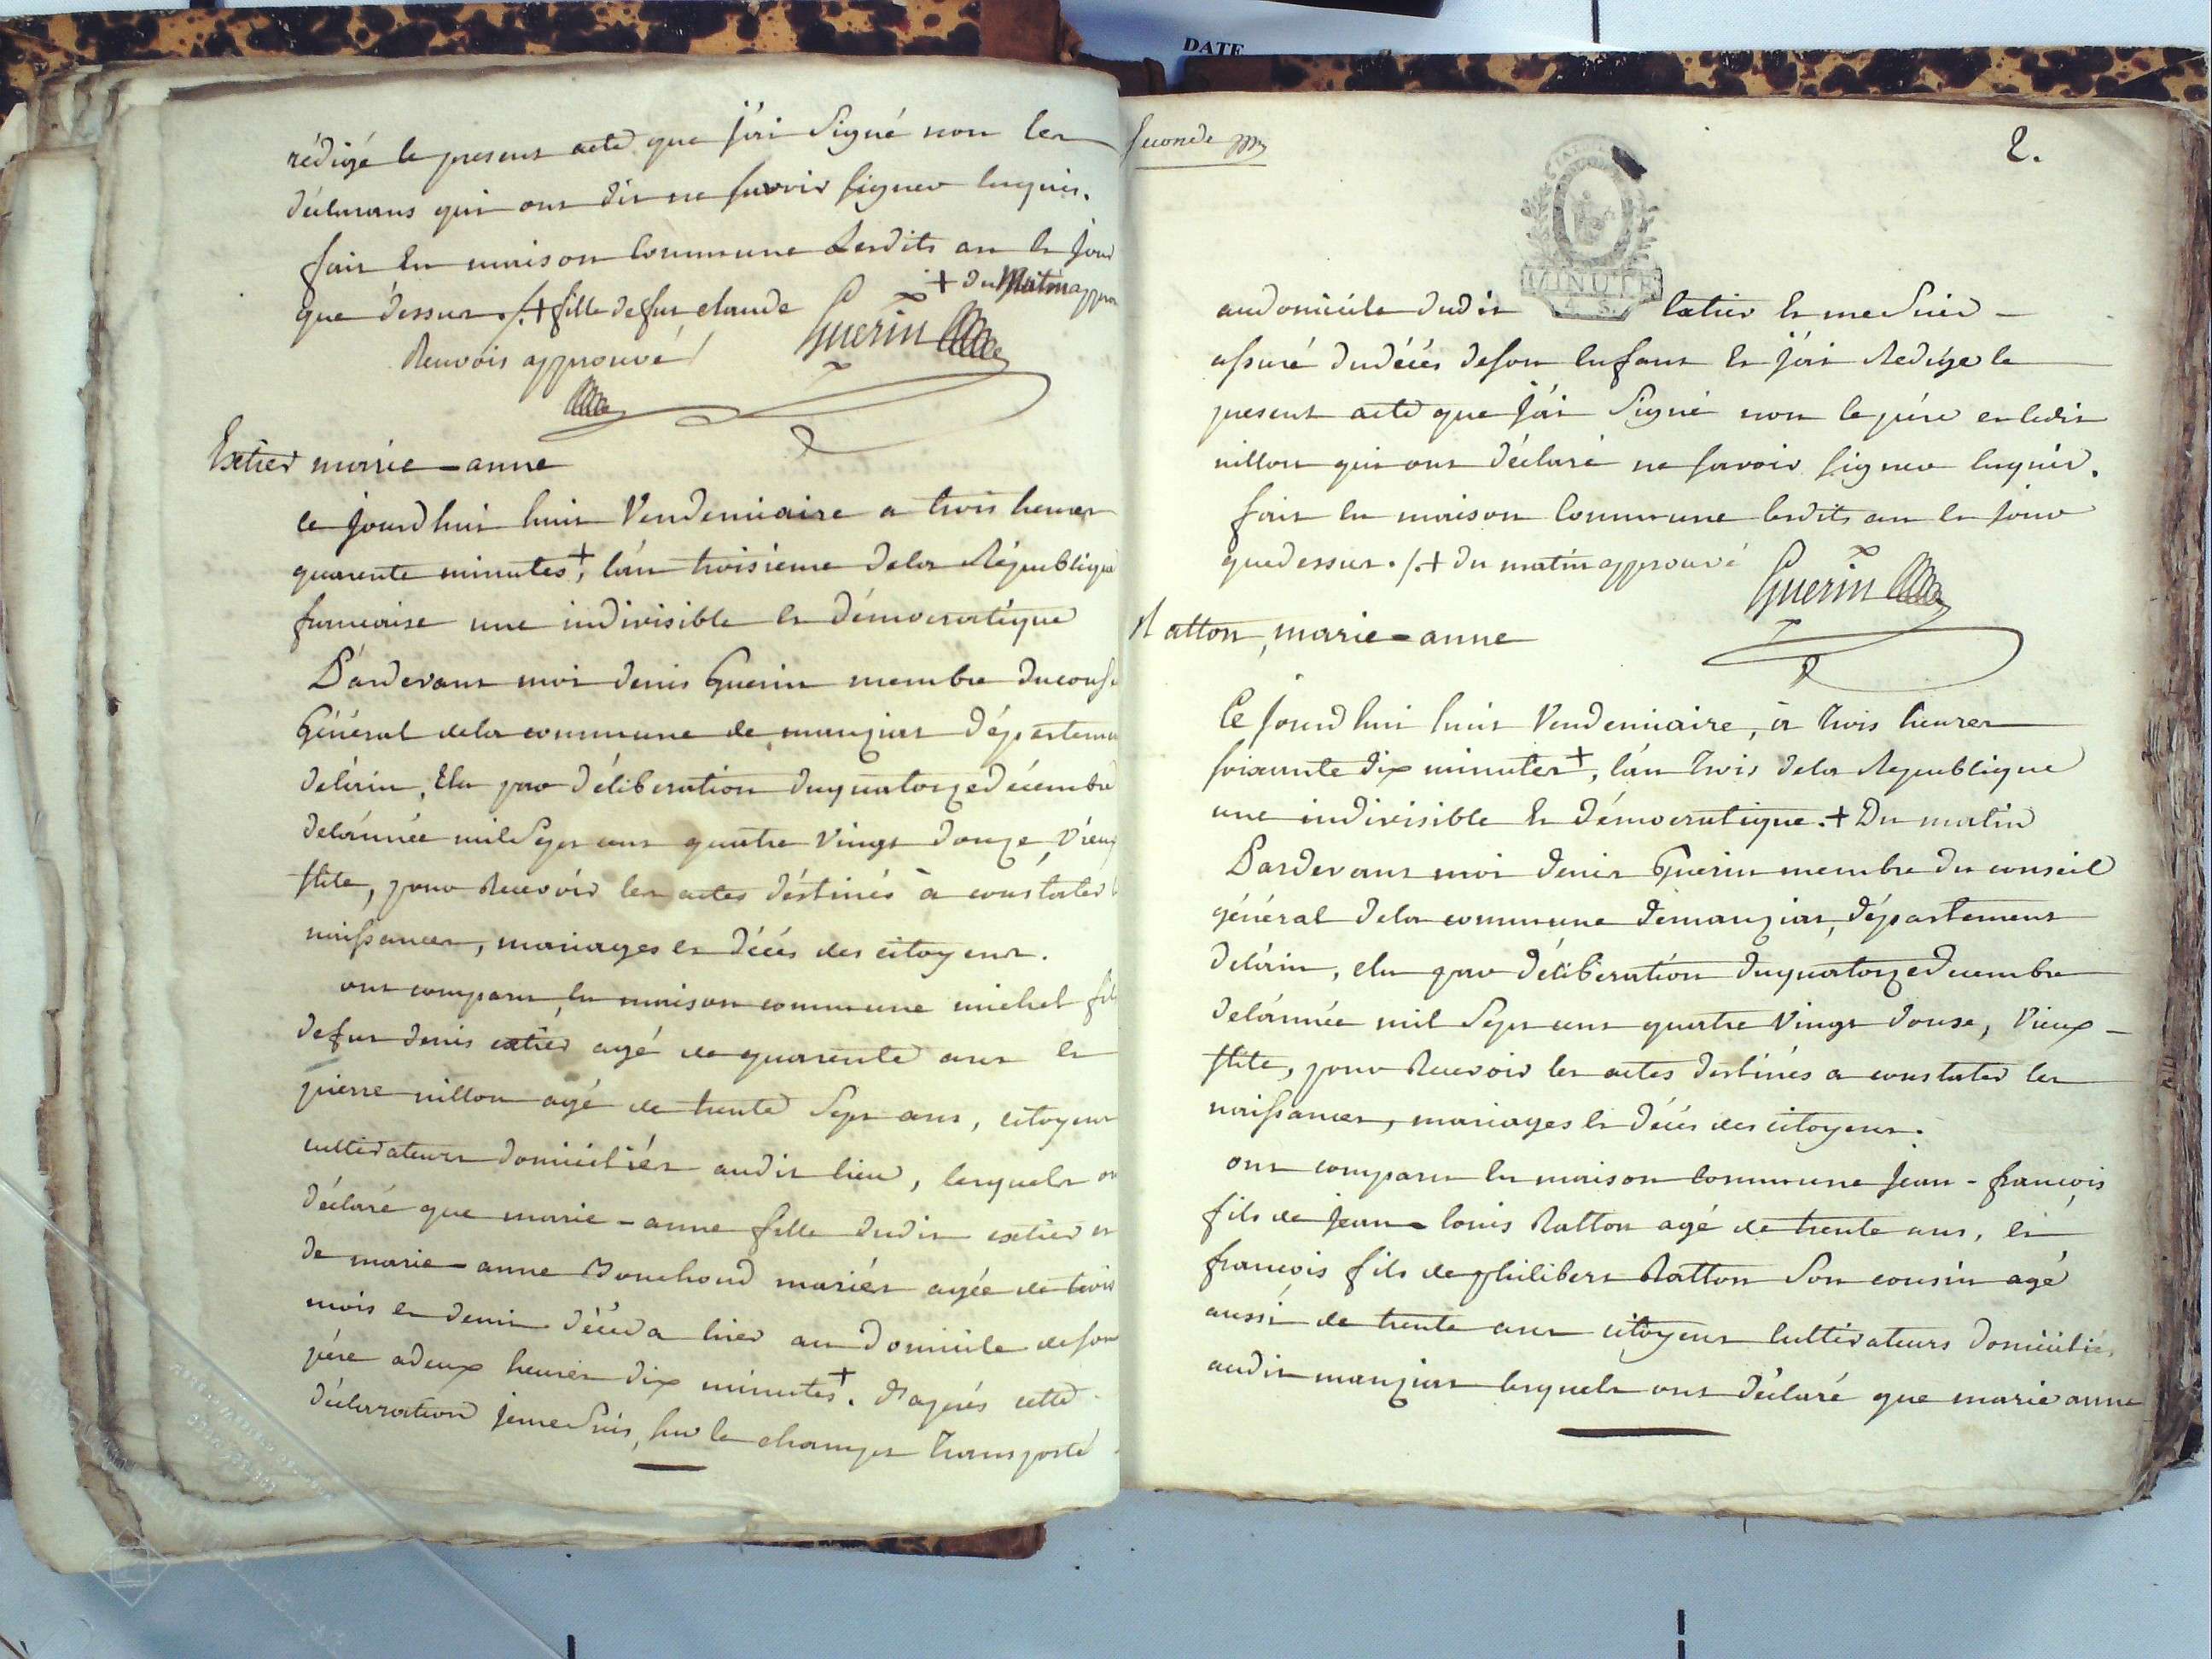 DATE
rédigé le present acte que j'ai signé non les
déclarans qui ont dit ne savoir signer enquis.
fait en maison commune lesdits an et jour
+ du matin appro
que dessus ./.+ fille de fut claude
Guerin
Renvois approuvé
Extier marie-anne
ce jourd'hui huit Vendemiaire a trois heures
quarente minutes +, l'an troisieme dela République
francaise une indivisible et démocratique
Pardevant moi denis Guerin membre du cons
Général dela commune de manziat départeme
delain, Elu par déliberation du quatorze décembre
delánnée mil sept cent quatre vingt douze, vieux
stile, pour Recevoir les actes déstinés à constater
naissances, mariages et décés des citoyens.
ont comparu en maison commune michel fil
defut denis extier agé de quarente ans et
pierre nillon agé de trente sept ans, citoyens
cultivateurs domiciliés audit lieu, lesquels on
déclaré que marie-anne fille dudit extier et
de marie-anne Bouchoud mariés agée de trois
mois et demi décéda hier au domicile de son
pére a deux heures dix minutes +. D'aprés cette
déclaration je me suis, sur le champs transporté
seconde
2.
MINUTE
au domicile dudit Extier et me suis
assuré du décés de son enfant et j'ai Redigé le
present acte que j'ai signé non le pére et ledit
nillon qui ont déclaré ne savoir signer enquis.
fait en maison commune lesdits an et jour
que dessus. /.+ du matin approuvé
Guerin
Ratton, marie-anne
Ce jourd'hui huit Vendemiaire, à trois heures
soixante dix minutes +, l'an trois dela République
une indivisible et démocratique. + Du matin
Pardevant moi denis Guerin membre du conseil
général dela commune demanziat, département
delain, elu par déliberation du quatorze decembre
delánnée mil sept cent quatre vingt douze, vieux
stile, pour Recevoir les actes destinés a constater les
naissances, mariages et décés des citoyens.
ont comparu en maison commune jean-francois
fils de jean-louis Ratton agé de trente ans, et
francois fils de philibert Ratton son cousin agé
aussi de trente ans citoyens cultivateurs domiciliés
audit manziat lesquels ont déclaré que marie anne